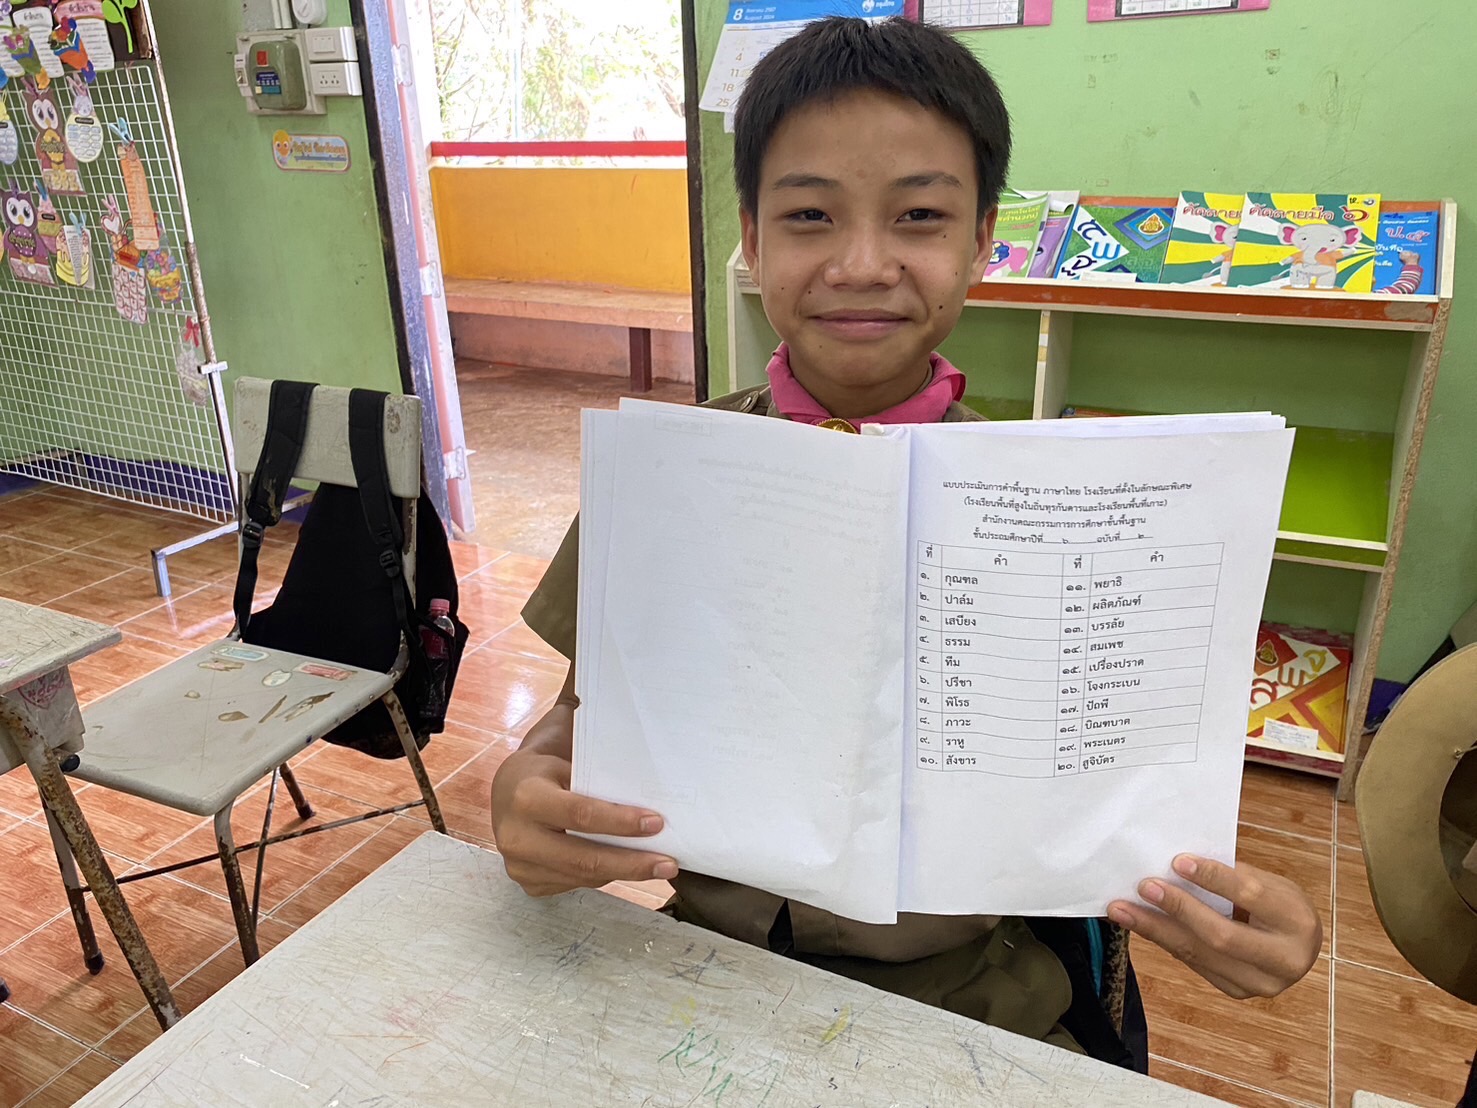 8
สิงหาคม 2567
August 2024
4
11
18
25
คัดลายมือ
คัดลายมือ ๖
ป.๕
แบบประเมินการคำพื้นฐาน ภาษาไทย โรงเรียนที่ตั้งในลักษณะพิเศษ
(โรงเรียนพื้นที่สูงในถิ่นทุรกันดารและโรงเรียนพื้นที่เกาะ)
สำนักงานคณะกรรมการการศึกษาขั้นพื้นฐาน
ชั้นประถมศึกษาปีที่ ๖ ฉบับที่ ๒
ที่ คำ ที่ คำ
๑. กุณฑล ๑๑. พยาธิ
๒. ปาล์ม ๑๒. ผลิตภัณฑ์
๓. เสบียง ๑๓. บรรลัย
๔. ธรรม ๑๔. สมเพช
๕. ทีม ๑๕. เปรื่องปราด
๖. ปรีชา ๑๖. โจงกระเบน
๗. พิโรธ ๑๗. ปัถพี
๘. ภาวะ ๑๘. บิณฑบาต
๙. ราหู ๑๙. พระเนตร
๑๐. สังขาร ๒๐. สูจิบัตร